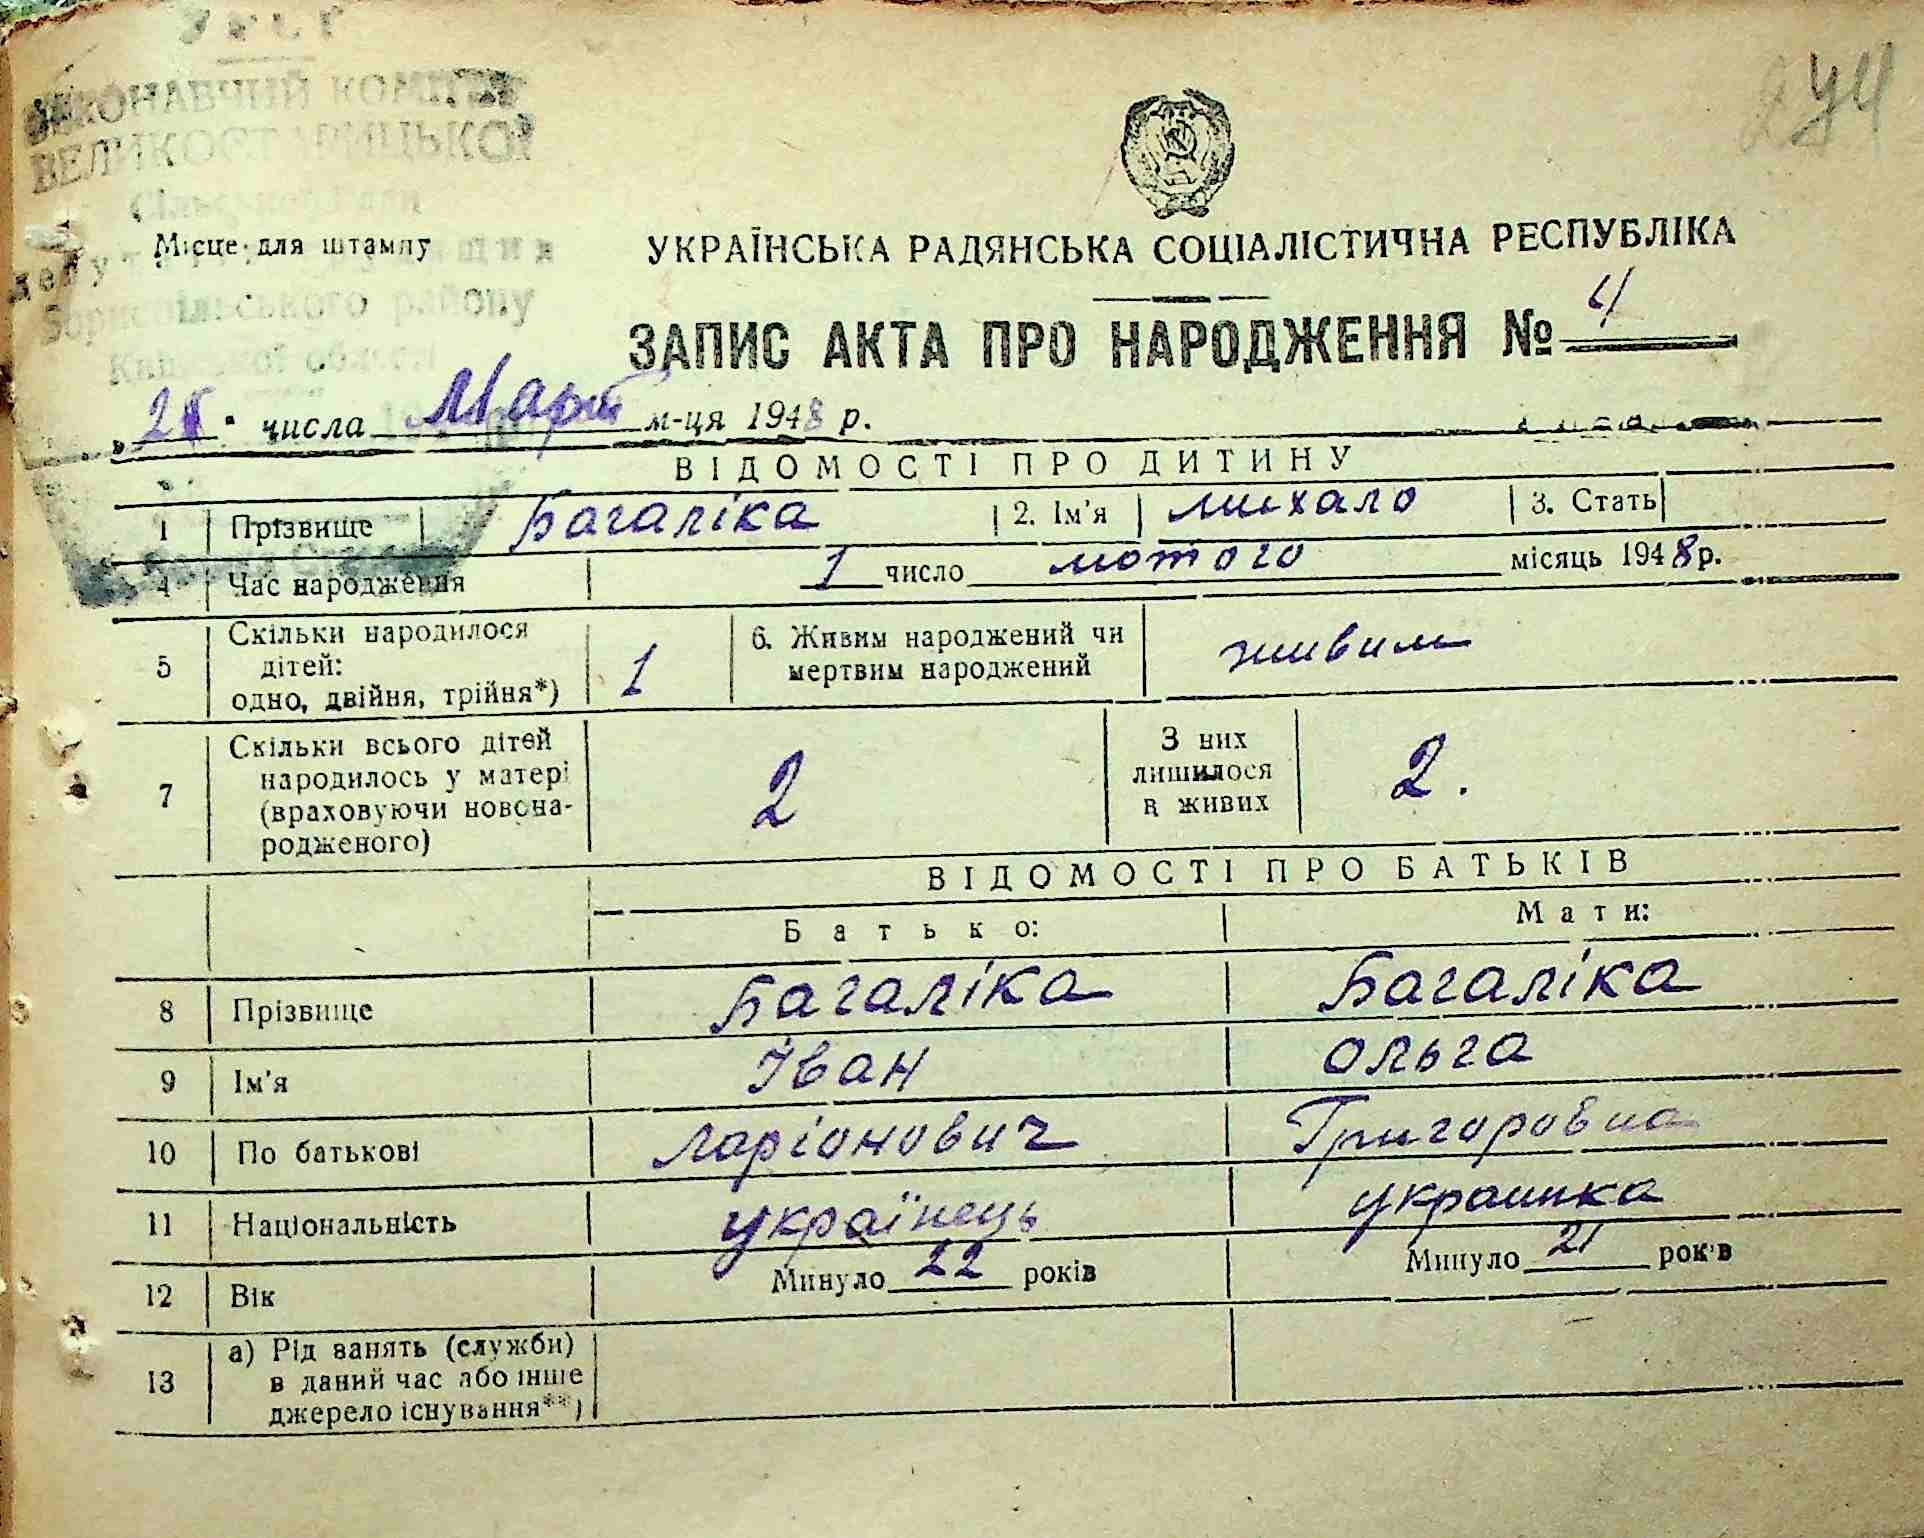 УРСР
ВИКОНАВЧИЙ КОМІТЕТ
ВЕЛИКОСТАРИЦЬКОЇ
Сільської Ради
Місце для штампу
Бориспільського району
Київської області
УКРАЇНСЬКА РАДЯНСЬКА СОЦІАЛІСТИЧНА РЕСПУБЛІКА
ЗАПИС АКТА ПРО НАРОДЖЕННЯ № 4
числа Март м-ця 1948 р.
ВІДОМОСТІ ПРО ДИТИНУ
1 Прізвище Багаліка 2. Ім'я михало 3. Стать
4 Час народження 1 число лютого місяць 1948 р.
5 Скільки народилося
дітей:
одно, двійня, трійня*) 1 6. Живим народжений чи
мертвим народжений живим
7 Скільки всього дітей
народилось у матері
(враховуючи новона-
родженого) 2 З них
лишилося
в живих 2.
ВІДОМОСТІ ПРО БАТЬКІВ
Батько: Мати:
8 Прізвище Багаліка Багаліка
9 Ім'я Іван Ольга
10 По батькові Ларіонович Григоровна
11 Національність українець украинка
12 Вік Минуло 22 років Минуло 21 років
13 а) Рід занять (служби)
в даний час або інше
джерело існування**)